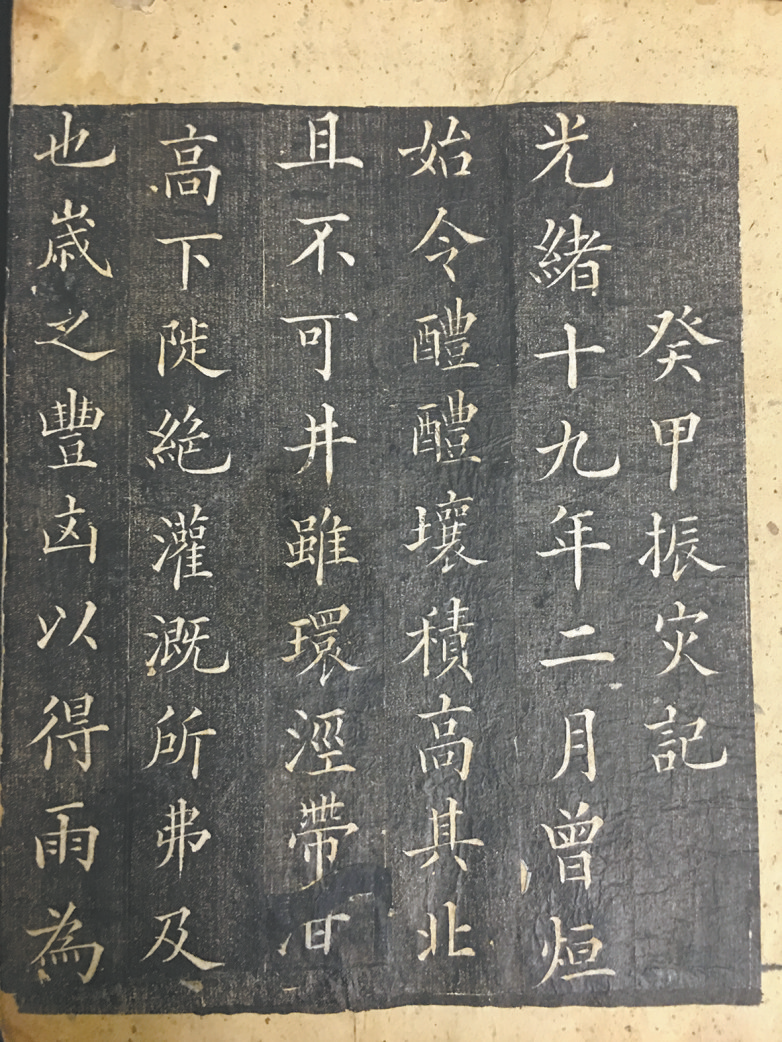 癸甲振灾記
光緒十九年二月曾烜
始令醴醴壤積高其北
且不可井雖環涇帶泔
高下陡絶灌溉所弗及
也歲之豐㐫以得雨為